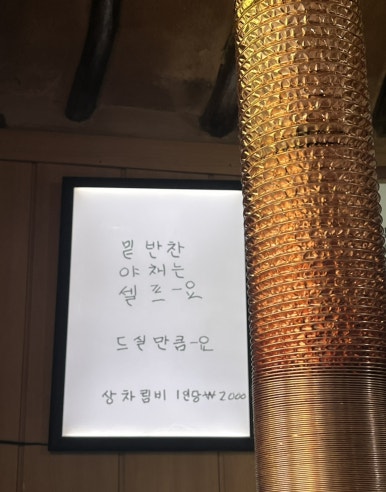 밑반찬
야채는
셀프-요
드실만큼-요
상차림비 1인당₩2000